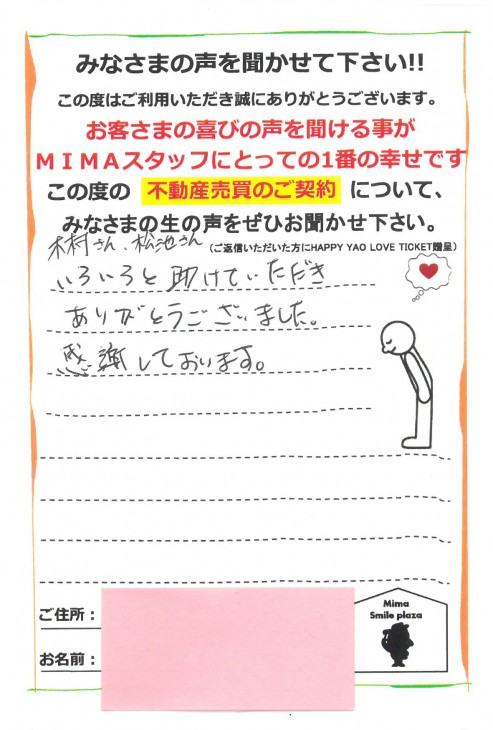 みなさまの声を聞かせて下さい!!
この度はご利用いただき誠にありがとうございます。
お客さまの喜びの声を聞ける事が
MIMAスタッフにとっての1番の幸せです
この度の 不動産売買のご契約 について、
みなさまの生の声をぜひお聞かせ下さい。
木村さん、松池さん
(ご返信いただいた方にHAPPY YAO LOVE TICKET贈呈)
いろいろと助けていただき
ありがとうございました。
感謝しております。
ご住所:
お名前:
Mima
Smile plaza